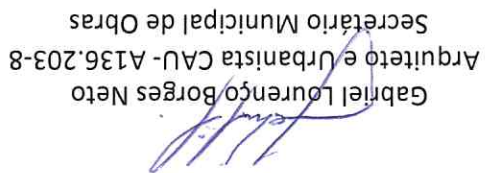 Gabriel Lourenço Borges Neto
Arquiteto e Urbanista CAU- A136.203-8
Secretário Municipal de Obras